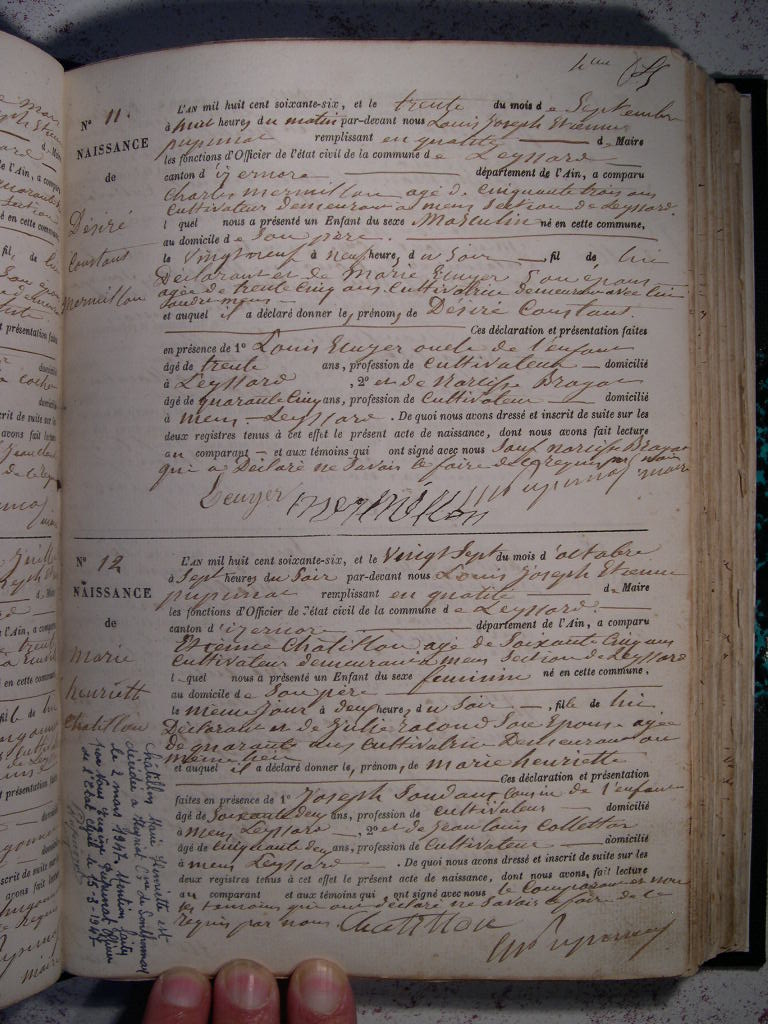 N° 11.
NAISSANCE
de
Désiré
Constant
Mermillon
L'AN mil huit cent soixante-six, et le trente du mois de Septembre
à huit heures du matin par-devant nous Louis Joseph Etienne
remplissant en qualité d Maire
les fonctions d'Officier de l'état civil de la commune de Leyssard
canton d'izernore département de l'Ain, a comparu
Charles Mermillon agé de Cinquante trois ans
Cultivateur demeurant a mens Section de Leyssard.
lequel nous a présenté un Enfant du sexe Masculin né en cette commune,
au domicile de Son père
le Vingt neuf à neuf heure, du Soir fil de lui
Déclarant et de Marie Son épouse
agée de trente Cinq ans Cultivatrice demeurant avec lui
et auquel il a déclaré donner le, prénom, de Désiré Constant.
Ces déclaration et présentation faites
en présence de 1° Louis oncle de l'enfant
âgé de trente ans, profession de Cultivateur domicilié
à Leyssard, 2° et de Narcisse
âgé de quarante Cinq ans, profession de Cultivateur domicilié
à mens Leyssard. De quoi nous avons dressé et inscrit de suite sur les
deux registres tenus à cet effet le présent acte de naissance, dont nous avons fait lecture
au comparant et aux témoins qui ont signé avec nous Sauf narcisse
qui a Déclaré ne Savoir le faire de ce requis
Mermillon
N° 12
NAISSANCE
de
Marie
henriette
Chatillon
L'AN mil huit cent soixante-six, et le Vingt Sept du mois d'octobre
à Sept heures du Soir par-devant nous Louis Joseph Etienne
remplissant en qualité d Maire
les fonctions d'Officier de l'état civil de la commune de Leyssard
canton d'izernore département de l'Ain, a comparu
Etienne Chatillon agé de Soixante Cinq ans
Cultivateur demeurant a mens Section de Leyssard
lequel nous a présenté un Enfant du sexe féminine né en cette commune,
au domicile de Son père
le meme jour à deux heures, du Soir, fille de lui
Déclarant et de Julie Son Epouse agée
de quarante ans Cultivatrice Demeurant au
meme lieu
et auquel il a déclaré donner le, prénom, de marie henriette
Ces déclaration et présentation
faites en présence de 1° Joseph Cousin de l'enfant
âgé de Soixante deux ans, profession de Cultivateur domicilié
à mens Leyssard, 2° et de Jean Louis
âgé de Cinquante deux ans, profession de Cultivateur domicilié
à mens Leyssard. De quoi nous avons dressé et inscrit de suite sur les
deux registres tenus à cet effet le présent acte de naissance, dont nous avons, fait lecture
au comparant et aux témoins qui ont signé avec nous le Comparant et non
les temoins qui ont déclaré ne Savoir le faire de ce
requis par nous Chatillon
Châtillon Marie Henriette est
décédée à
le 2 mars 1947. Mention faite
par nous Officier
de l'Etat Civil le 15-3-1947